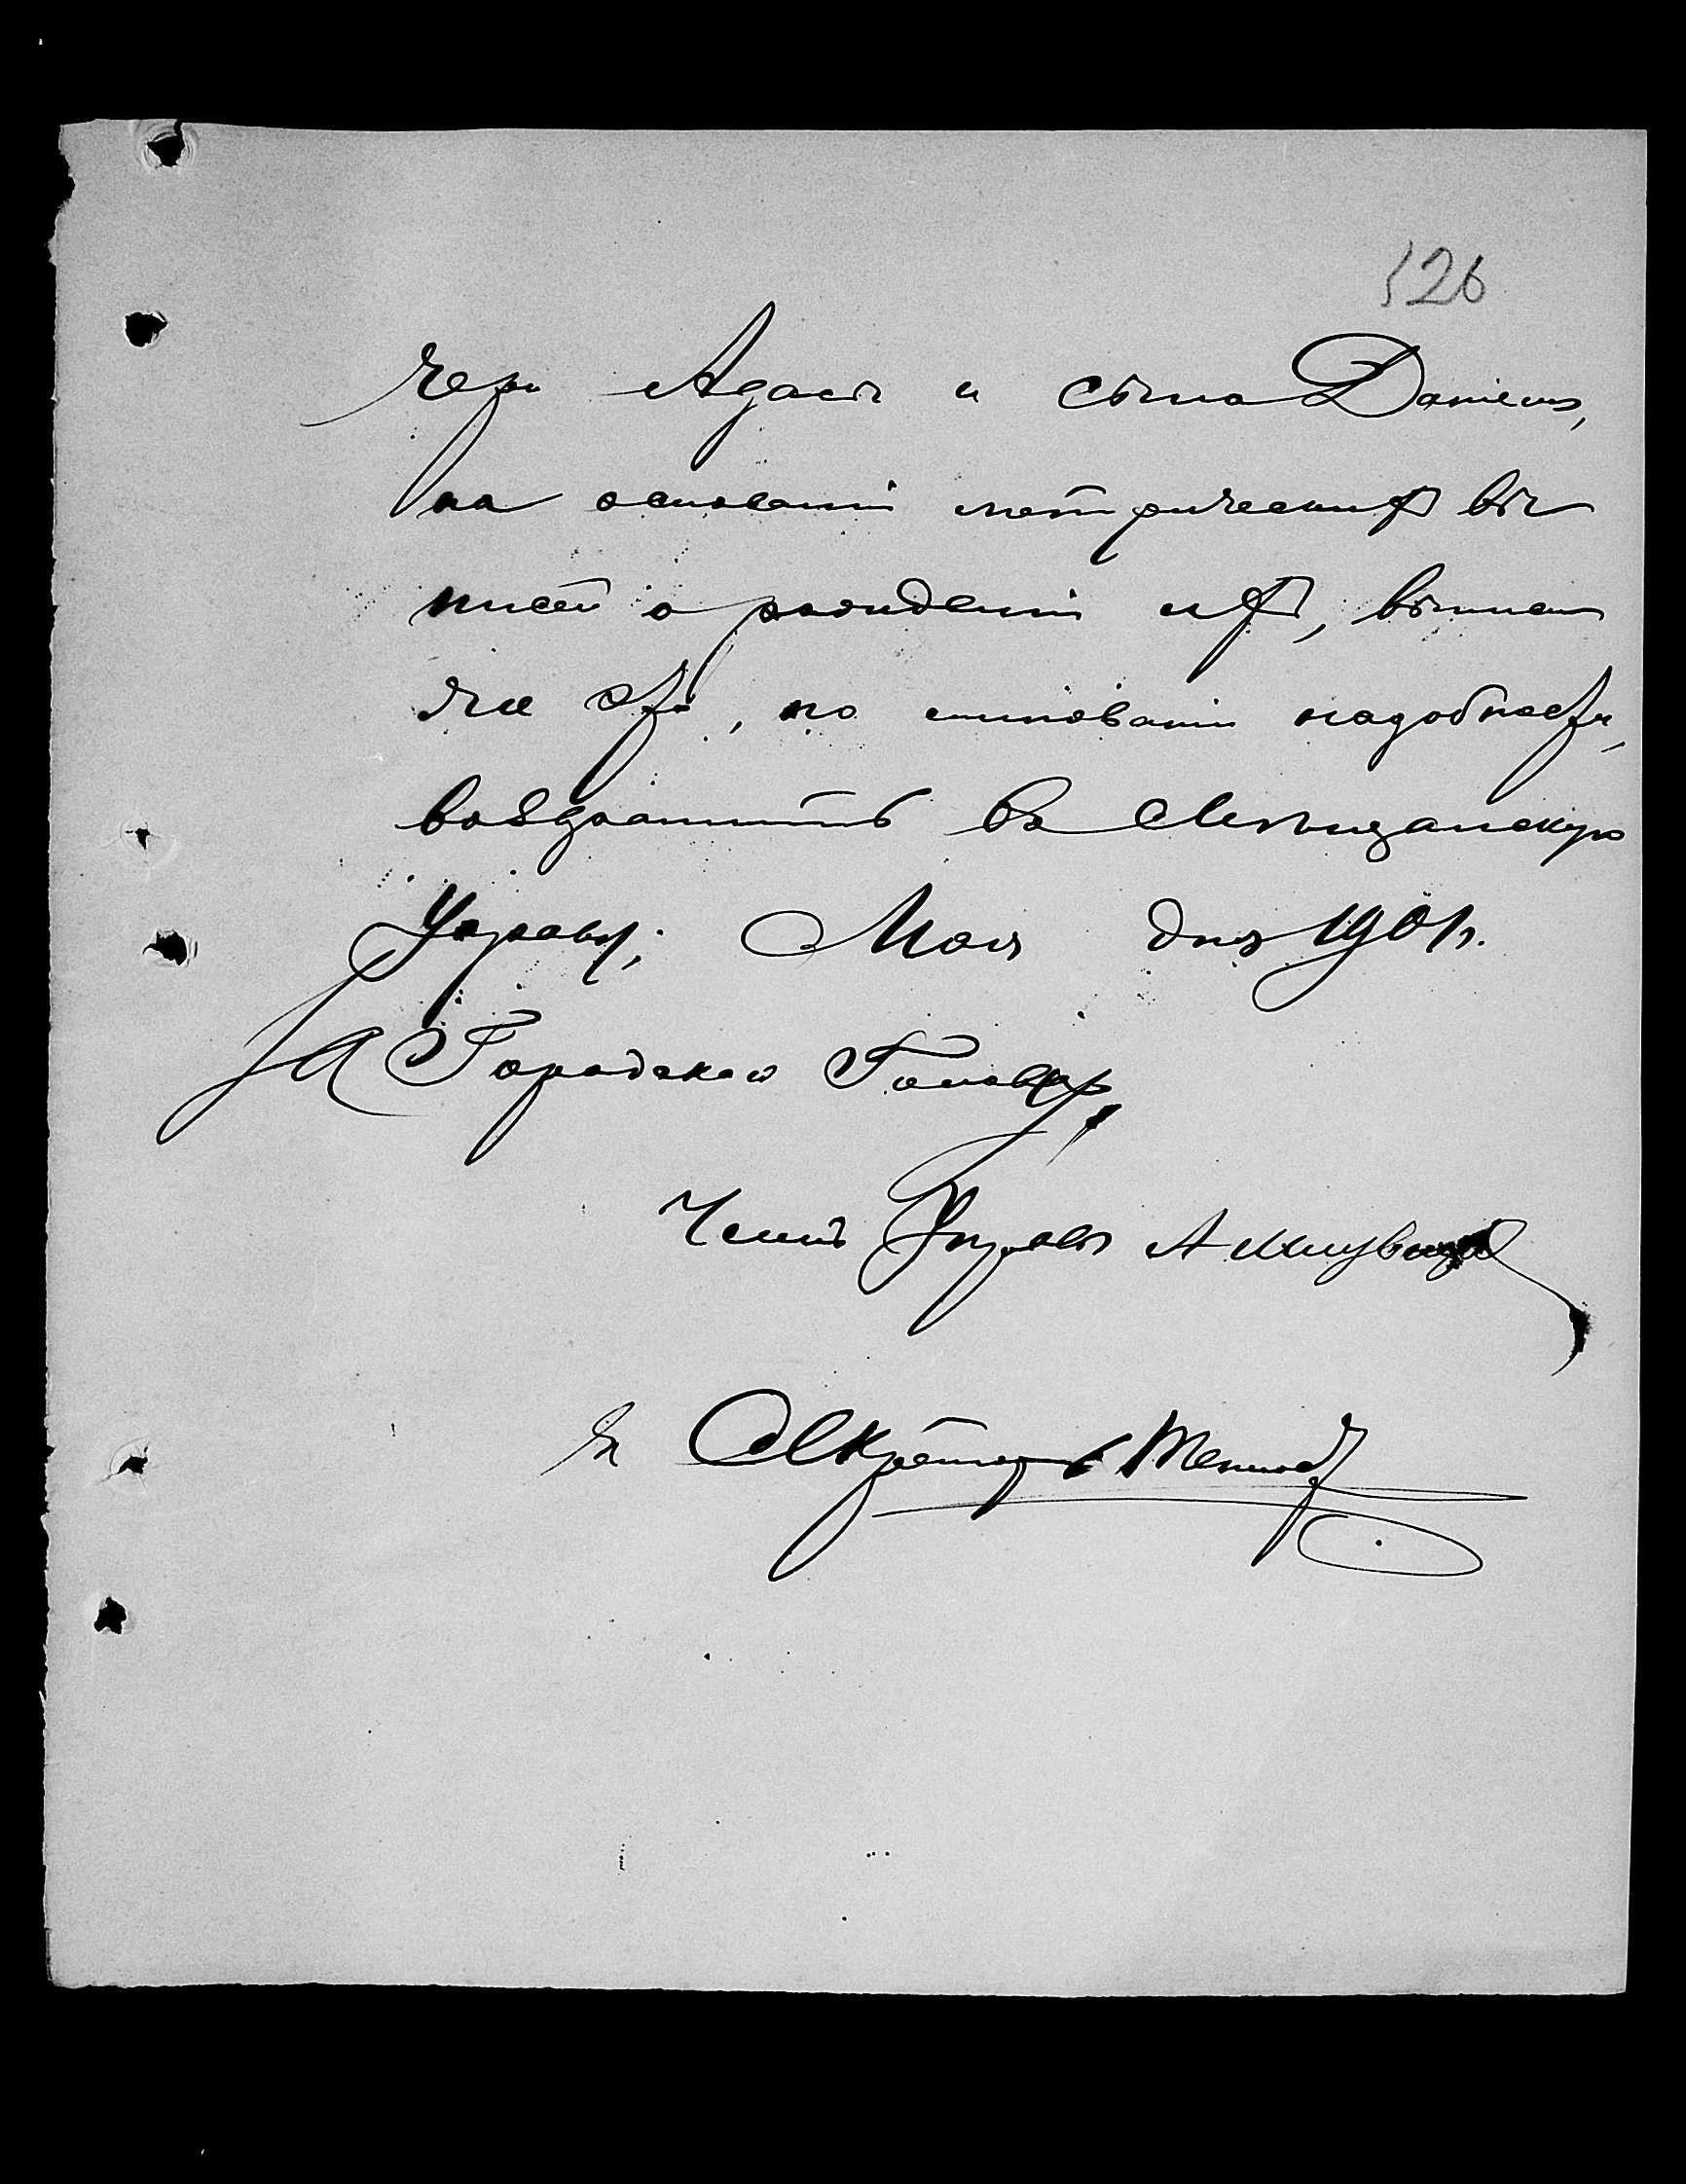 126
чери Адасы и сына Даніеля,
на основаніи метрическихъ вы
писей о рожденіи ихъ, выписи
же эти, по минованіи надобности,
возвратить въ Мѣщанскую
Управу; Мая дня 1901 г.
За Городского Голову,
Членъ Управы А
Секретарь